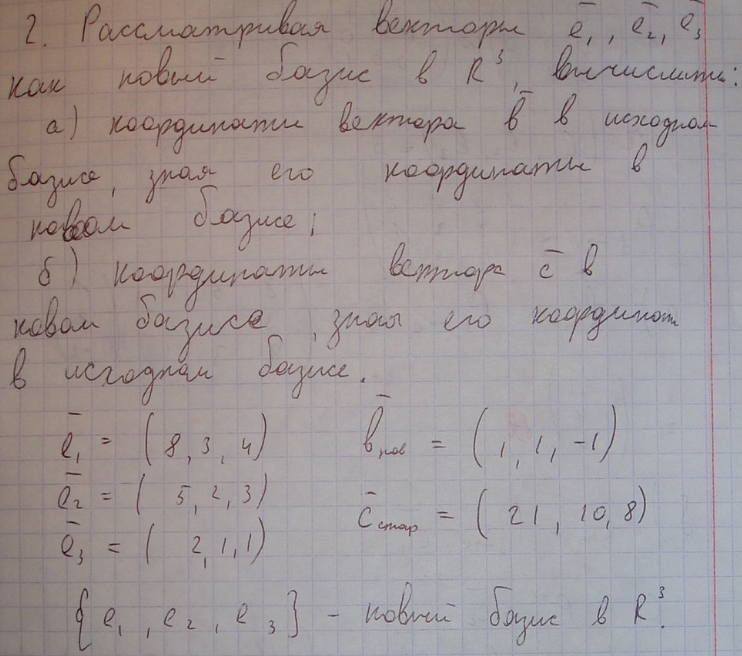 2. Рассматривая векторы e̅₁, e̅₂, e̅₃
как новый базис в R³, вычислить:
а) координаты вектора b̅ в исходном
базисе, зная его координаты в
новом базисе;
б) координаты вектора c̅ в
новом базисе, зная его координаты
в исходном базисе.
e̅₁ = (8, 3, 4) b̅нов = (1, 1, -1)
e̅₂ = (5, 2, 3) c̅стар = (21, 10, 8)
e̅₃ = (2, 1, 1)
{e₁, e₂, e₃} - новый базис в R³.